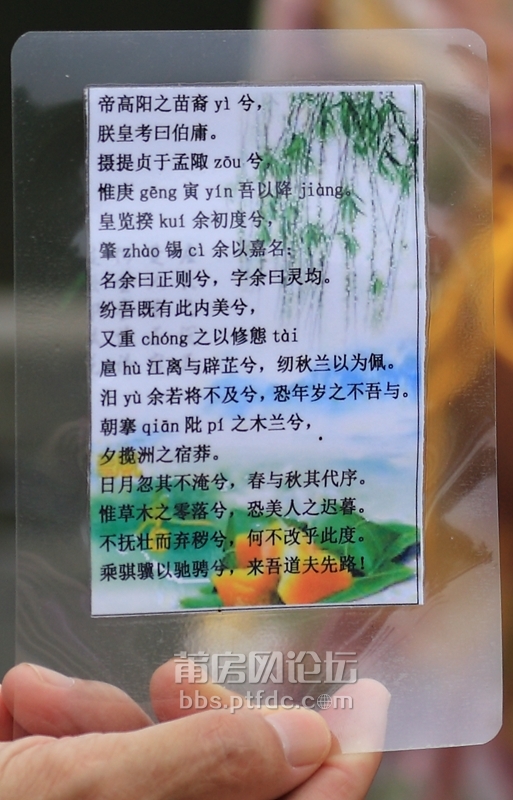 帝高阳之苗裔 yì 兮，
朕皇考曰伯庸。
摄提贞于孟陬 zōu 兮，
惟庚 gēng 寅 yín 吾以降 jiàng。
皇览揆 kuí 余初度兮，
肇 zhào 锡 cì 余以嘉名；
名余曰正则兮，字余曰灵均。
纷吾既有此内美兮，
又重 chóng 之以修態 tài
扈 hù 江离与辟芷兮，纫秋兰以为佩。
汩 yù 余若将不及兮，恐年岁之不吾与。
朝搴 qiān 阰 pí 之木兰兮，
夕揽洲之宿莽。
日月忽其不淹兮，春与秋其代序。
惟草木之零落兮，恐美人之迟暮。
不抚壮而弃秽兮，何不改乎此度。
乘骐骥以驰骋兮，来吾道夫先路！
莆房网论坛
bbs.ptfdc.com